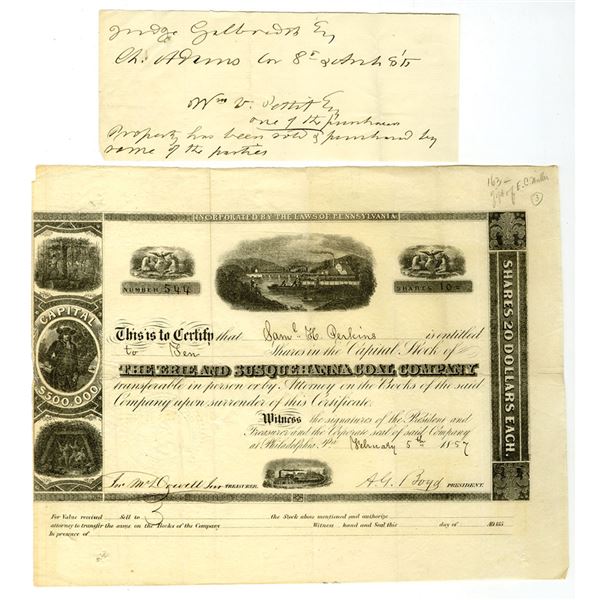 Judge Galbraith Esq
Ch. Adams Cor 8th & Arch Sts
Wm V. Pettit Esq
one of the purchasers
Property has been sold & purchased by
some of the parties
163-
gift of E. C. Miller
3
INCORPORATED BY THE LAWS OF PENNSYLVANIA
NUMBER 544
SHARES 10
This is to Certify that Saml. H. Perkins is entitled
to Ten Shares in the Capital Stock of
THE ERIE AND SUSQUEHANNA COAL COMPANY
transferable in person or by Attorney on the Books of the said
Company upon surrender of this Certificate.
Witness the signatures of the President and
Treasurer and the Corporate seal of said Company
at Philadelphia, February 5th 1857
Jno McDowell Jnr TREASURER. A G Boyd PRESIDENT.
CAPITAL
$500,000
SHARES 20 DOLLARS EACH.
For Value received Sell to the Stock above mentioned and authorize
attorney to transfer the same on the Books of the Company Witness hand and Seal this day of AD. 185
In presence of